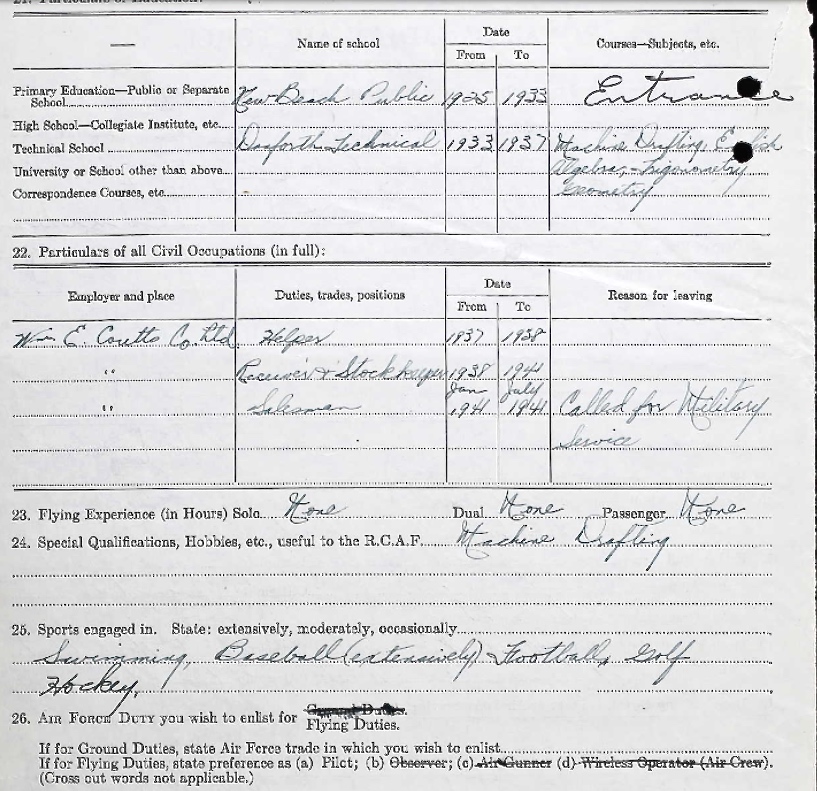 21. Particulars of Education:
— Name of school Date Courses—Subjects, etc.
From To
Primary Education—Public or Separate
School Kew Beach Public 1925 1933 Entrance
High School—Collegiate Institute, etc.
Technical School Danforth Technical 1933 1937 Machine Drafting, English
University or School other than above Algebra,-Trigonometry
Correspondence Courses, etc. Geometry
22. Particulars of all Civil Occupations (in full):
Employer and place Duties, trades, positions Date Reason for leaving
From To
Wm E. Coutts Co. Ltd. Helper 1937 1938
" Receiver & Stockkeeper 1938 1941
" Salesman Jan 1941 July 1941 Called for Military
Service
23. Flying Experience (in Hours) Solo None Dual None Passenger None
24. Special Qualifications, Hobbies, etc., useful to the R.C.A.F. Machine Drafting
25. Sports engaged in. State: extensively, moderately, occasionally
Swimming, Baseball (extensively) - Football, Golf
Hockey,
26. AIR FORCE DUTY you wish to enlist for Ground Duties.
Flying Duties.
If for Ground Duties, state Air Force trade in which you wish to enlist
If for Flying Duties, state preference as (a) Pilot; (b) Observer; (c) Air Gunner (d) Wireless Operator (Air Crew).
(Cross out words not applicable.)